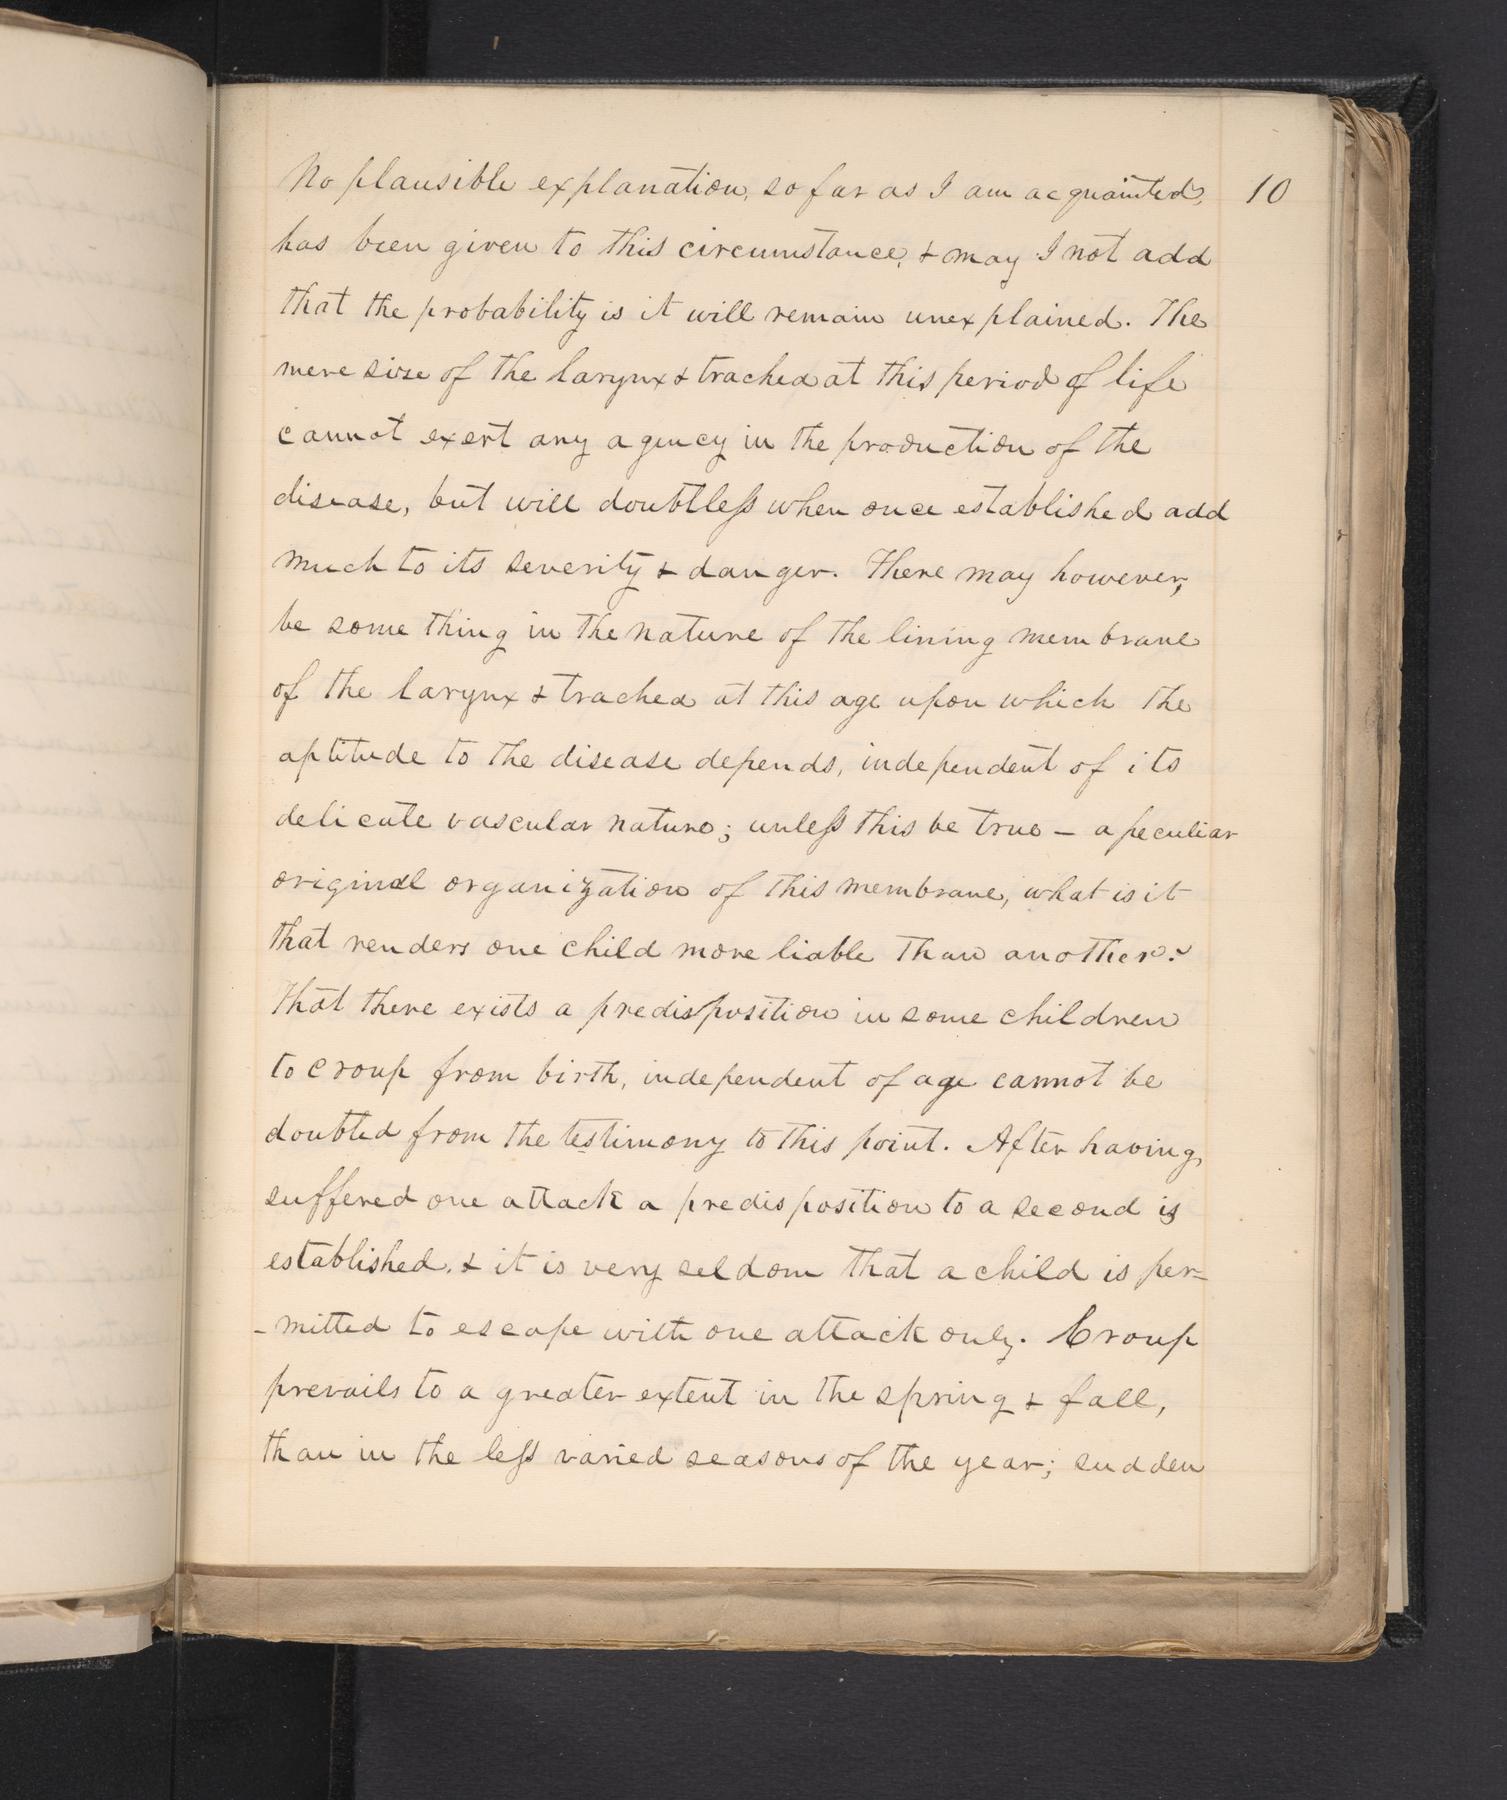 10
No plausible explanation, so far as I am acquainted,
has been given to this circumstance, & may I not add
that the probability is it will remain unexplained. The
mere size of the larynx & trachea at this period of life
cannot exert any agency in the production of the
disease, but will doubtless when once established add
much to its severity & danger. There may however,
be some thing in the nature of the lining membrane
of the larynx & trachea at this age upon which the
aptitude to the disease depends, independent of its
delicate vascular nature; unless this be true – a peculiar
original organization of this membrane, what is it
that renders one child more liable than another?
That there exists a predisposition in some children
to croup from birth, independent of age cannot be
doubted from the testimony to this point. After having
suffered one attack a predisposition to a second is
established, & it is very seldom that a child is per=
-mitted to escape with one attack only. Croup
prevails to a greater extent in the spring & fall,
than in the less varied seasons of the year; sudden